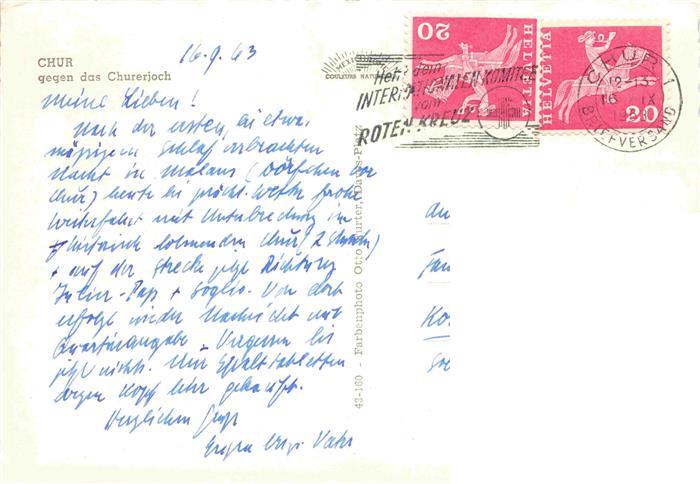 CHUR
gegen das Churerjoch
16.9.63
Meine Lieben!
Nach der ersten, bei etwas
mässigem Schlaf verbrachten
Nacht in Malans (Dörfchen vor
Chur) heute bei prächt. Wetter frohe
Weiterfahrt mit Unterbrechung im
historisch lohnenden Chur (2 Stunden)
+ auf der Strecke jetzt Richtung
Julier-Pass + Soglio. Von dort
erfolgt wieder Nachricht mit
Quartierangabe. Vergessen bis
jetzt nichts. Nur
wegen Kopf sehr gebraucht.
Herzlichen Gruss
Vater
COULEURS
43-160 - Farbenphoto Otto Furter, Davos-Platz
20 HELVETIA
HELVETIA 20
Helft dem
INTERNATIONALEN KOMITEE
vom
ROTEN KREUZ
CHUR 1
16 IX
BRIEFVERSAND
an
Fam